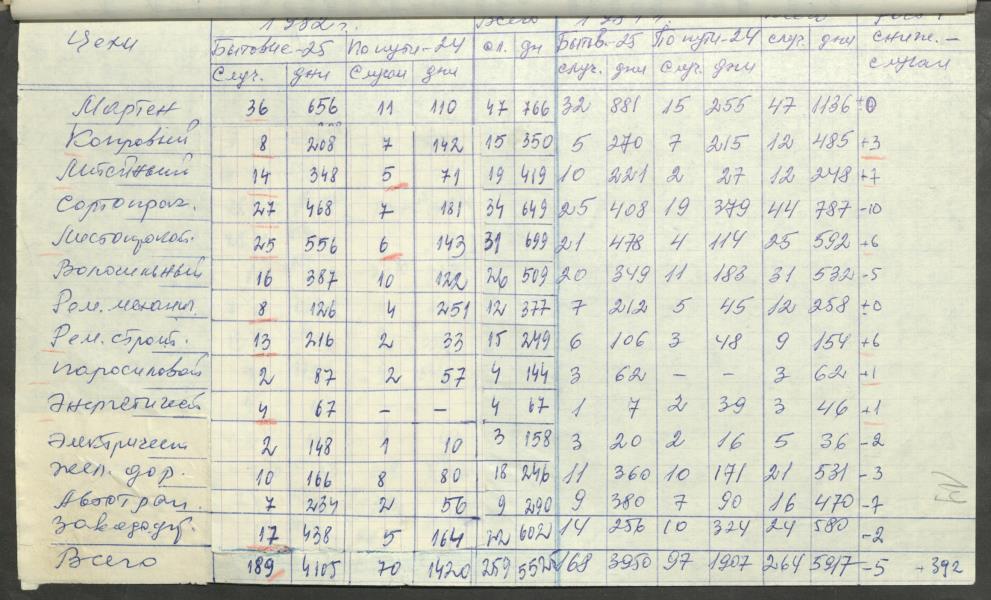 1982 г. Всего Всего
Цехи Бытовые-25 По пути-24 сл. дн Бытов.-25 По пути-24 случ. дни сниж.-
Случ. дни Случаи дни случ. дни случ. дни случаи
Мартен 36 656 11 110 47 766 32 881 15 255 47 1136 ±0
Копровый 8 208 7 142 15 350 5 270 7 215 12 485 +3
Литейный 14 348 5 71 19 419 10 221 2 27 12 248 +7
Сортопрок. 27 468 7 181 34 649 25 408 19 379 44 787 -10
Листопрокат. 25 556 6 143 31 699 21 478 4 114 25 592 +6
Волочильный 16 387 10 122 26 509 20 349 11 183 31 532 -5
Рем. механич. 8 126 4 251 12 377 7 212 5 45 12 258 ±0
Рем. строит. 13 216 2 33 15 249 6 106 3 48 9 154 +6
Паросиловой 2 87 2 57 4 144 3 62 - - 3 62 +1
Энергетическ 4 67 - - 4 67 1 7 2 39 3 46 +1
Электрическ 2 148 1 10 3 158 3 20 2 16 5 36 -2
Жел. дор. 10 166 8 80 18 246 11 360 10 171 21 531 -3
Автотран. 7 234 2 56 9 290 9 380 7 90 16 470 -7
Заводоупр. 17 438 5 164 22 602 14 256 10 324 24 580 -2
Всего 189 4105 70 1420 259 5525 168 3950 97 1907 264 5917 -5 +392